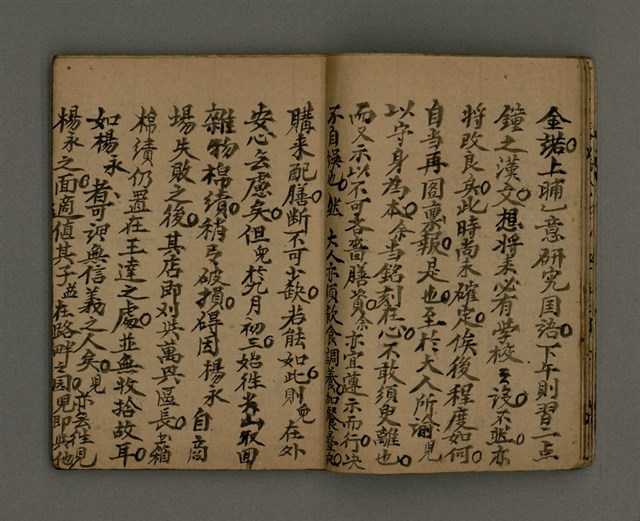 金諾上晡乙意研究国語下午則習一点
鐘之漢文想將来必有学校之設不然亦
將改良矣此時尚未確定俟後程度如何
自当再回稟報是也至於大人所諭兒
以守身為本余当銘刻在心不敢須臾離也
而又示以不可吝嗇膳資余亦宜遵示而行决
不自悞也然大人亦須飲食調養如餐
購来配膳断不可少缺若能如此則兒在外
安心無慮矣但兒於九月初三始往光山取回
雜物棉績稍亐破損碍因楊永自商
場失敗之後其店即刈共萬興區長箱
棉績仍置在王達之處並無收拾故耳
如楊永者可謂無信義之人矣兒亦去往見
楊永之面適值其子並在路畔之因見即與他